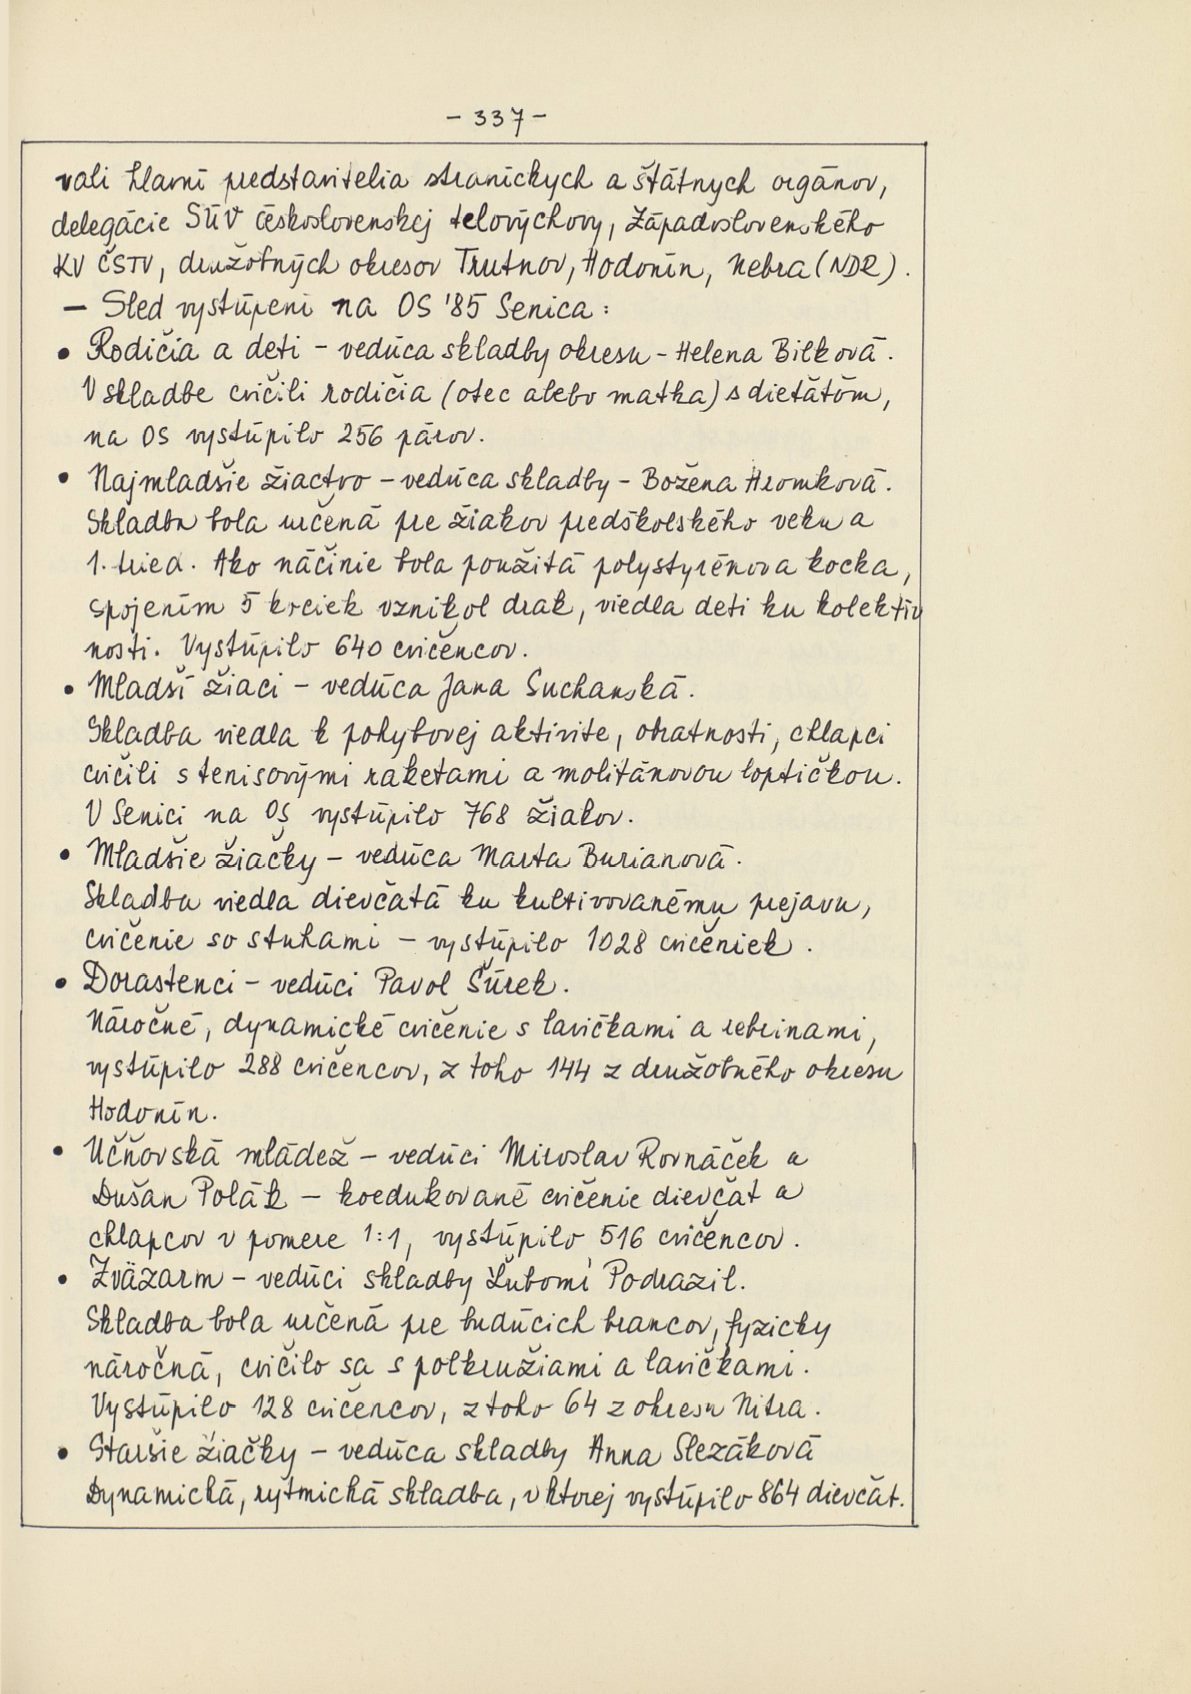 - 337 -
vali hlavní predstavitelia straníckych a štátnych orgánov,
delegácie SÚV Československej telovýchovy, Západoslovenského
KV ČSTV, družobných okresov Trutnov, Hodonín, Nebra (NDR).
- Sled vystúpení na OS '85 Senica:
• Rodičia a deti - vedúca skladby okresu - Helena Bílková.
V skladbe cvičili rodičia (otec alebo matka) s dieťaťom,
na OS vystúpilo 256 párov.
• Najmladšie žiactvo - vedúca skladby - Božena Hromková.
Skladba bola určená pre žiakov predškolského veku a
1. tried. Ako náčinie bola použitá polystyrénova kocka,
spojením 5 kociek vznikol drak, viedla deti ku kolektív
nosti. Vystúpilo 640 cvičencov.
• Mladší žiaci - vedúca Jana Suchanská.
Skladba viedla k pohybovej aktivite, obratnosti, chlapci
cvičili s tenisovými raketami a molitánovou loptičkou.
V Senici na OS vystúpilo 768 žiakov.
• Mladšie žiačky - vedúca Marta Burianová.
Skladba viedla dievčatá ku kultivovanému prejavu,
cvičenie so stuhami - vystúpilo 1028 cvičeniek.
• Dorastenci - vedúci Pavol Šúrek.
Náročné, dynamické cvičenie s lavičkami a rebrinami,
vystúpilo 288 cvičencov, z toho 144 z družobného okresu
Hodonín.
• Učňovská mládež - vedúci Miroslav Rovnáček a
Dušan Polák - koedukované cvičenie dievčat a
chlapcov v pomere 1:1, vystúpilo 516 cvičencov.
• Zväzarm - vedúci skladby Ľubomí Podrazil.
Skladba bola určená pre budúcich brancov, fyzicky
náročná, cvičilo sa s polkružiami a lavičkami.
Vystúpilo 128 cvičencov, z toho 64 z okresu Nitra.
• Staršie žiačky - vedúca skladby Anna Slezáková
Dynamická, rytmická skladba, v ktorej vystúpilo 864 dievčat.